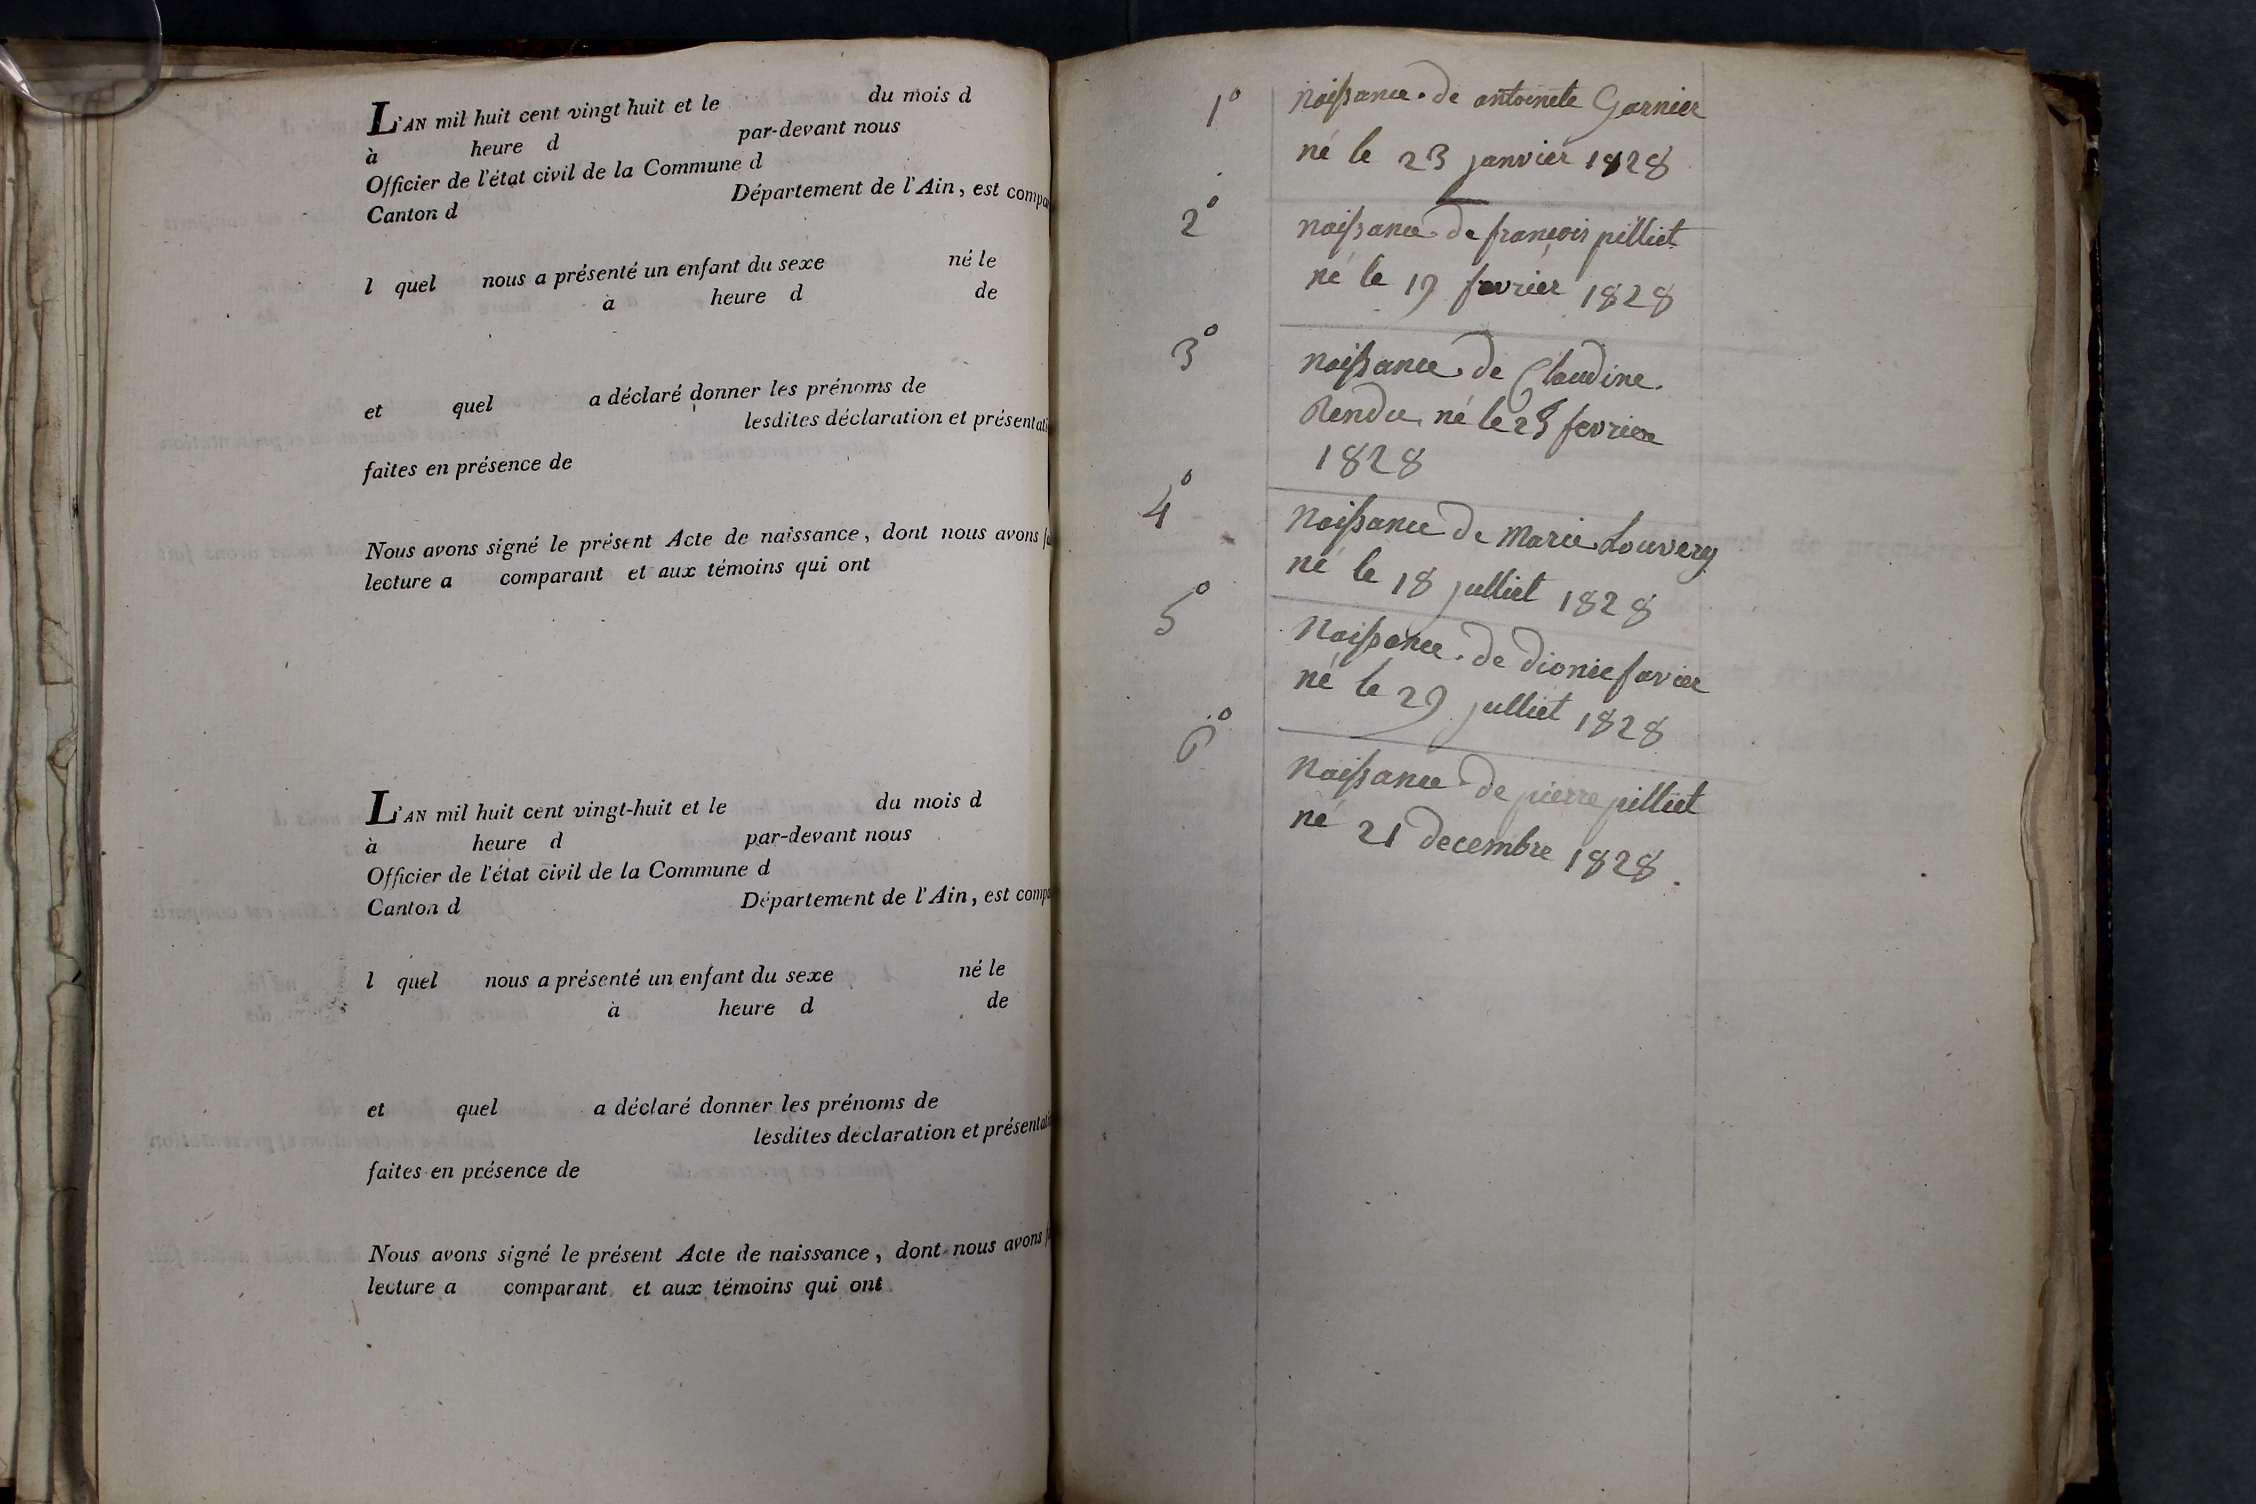 L'AN mil huit cent vingt huit et le du mois d
à heure d par-devant nous
Officier de l'état civil de la Commune d
Canton d Département de l'Ain, est compa
l quel nous a présenté un enfant du sexe né le
à heure d de
et quel a déclaré donner les prénoms de
lesdites déclaration et présentati
faites en présence de
Nous avons signé le présent Acte de naissance, dont nous avons
lecture a comparant et aux témoins qui ont
L'AN mil huit cent vingt-huit et le du mois d
à heure d par-devant nous
Officier de l'état civil de la Commune d
Canton d Département de l'Ain, est comp
l quel nous a présenté un enfant du sexe né le
à heure d de
et quel a déclaré donner les prénoms de
lesdites déclaration et présentati
faites en présence de
Nous avons signé le présent Acte de naissance, dont nous avons
lecture a comparant et aux témoins qui ont
1° naissance de antoinete Garnier
né le 23 janvier 1828
2° naissance de françois pilliet
né le 19 fevrier 1828
3° naissance de Claudine
Rendu né le 25 fevrier
1828
4° Naissance de Marie Louvery
né le 18 julliet 1828
5° Naissance de dionie favier
né le 29 julliet 1828
6° Naissance de pierre pilliet
né 21 decembre 1828